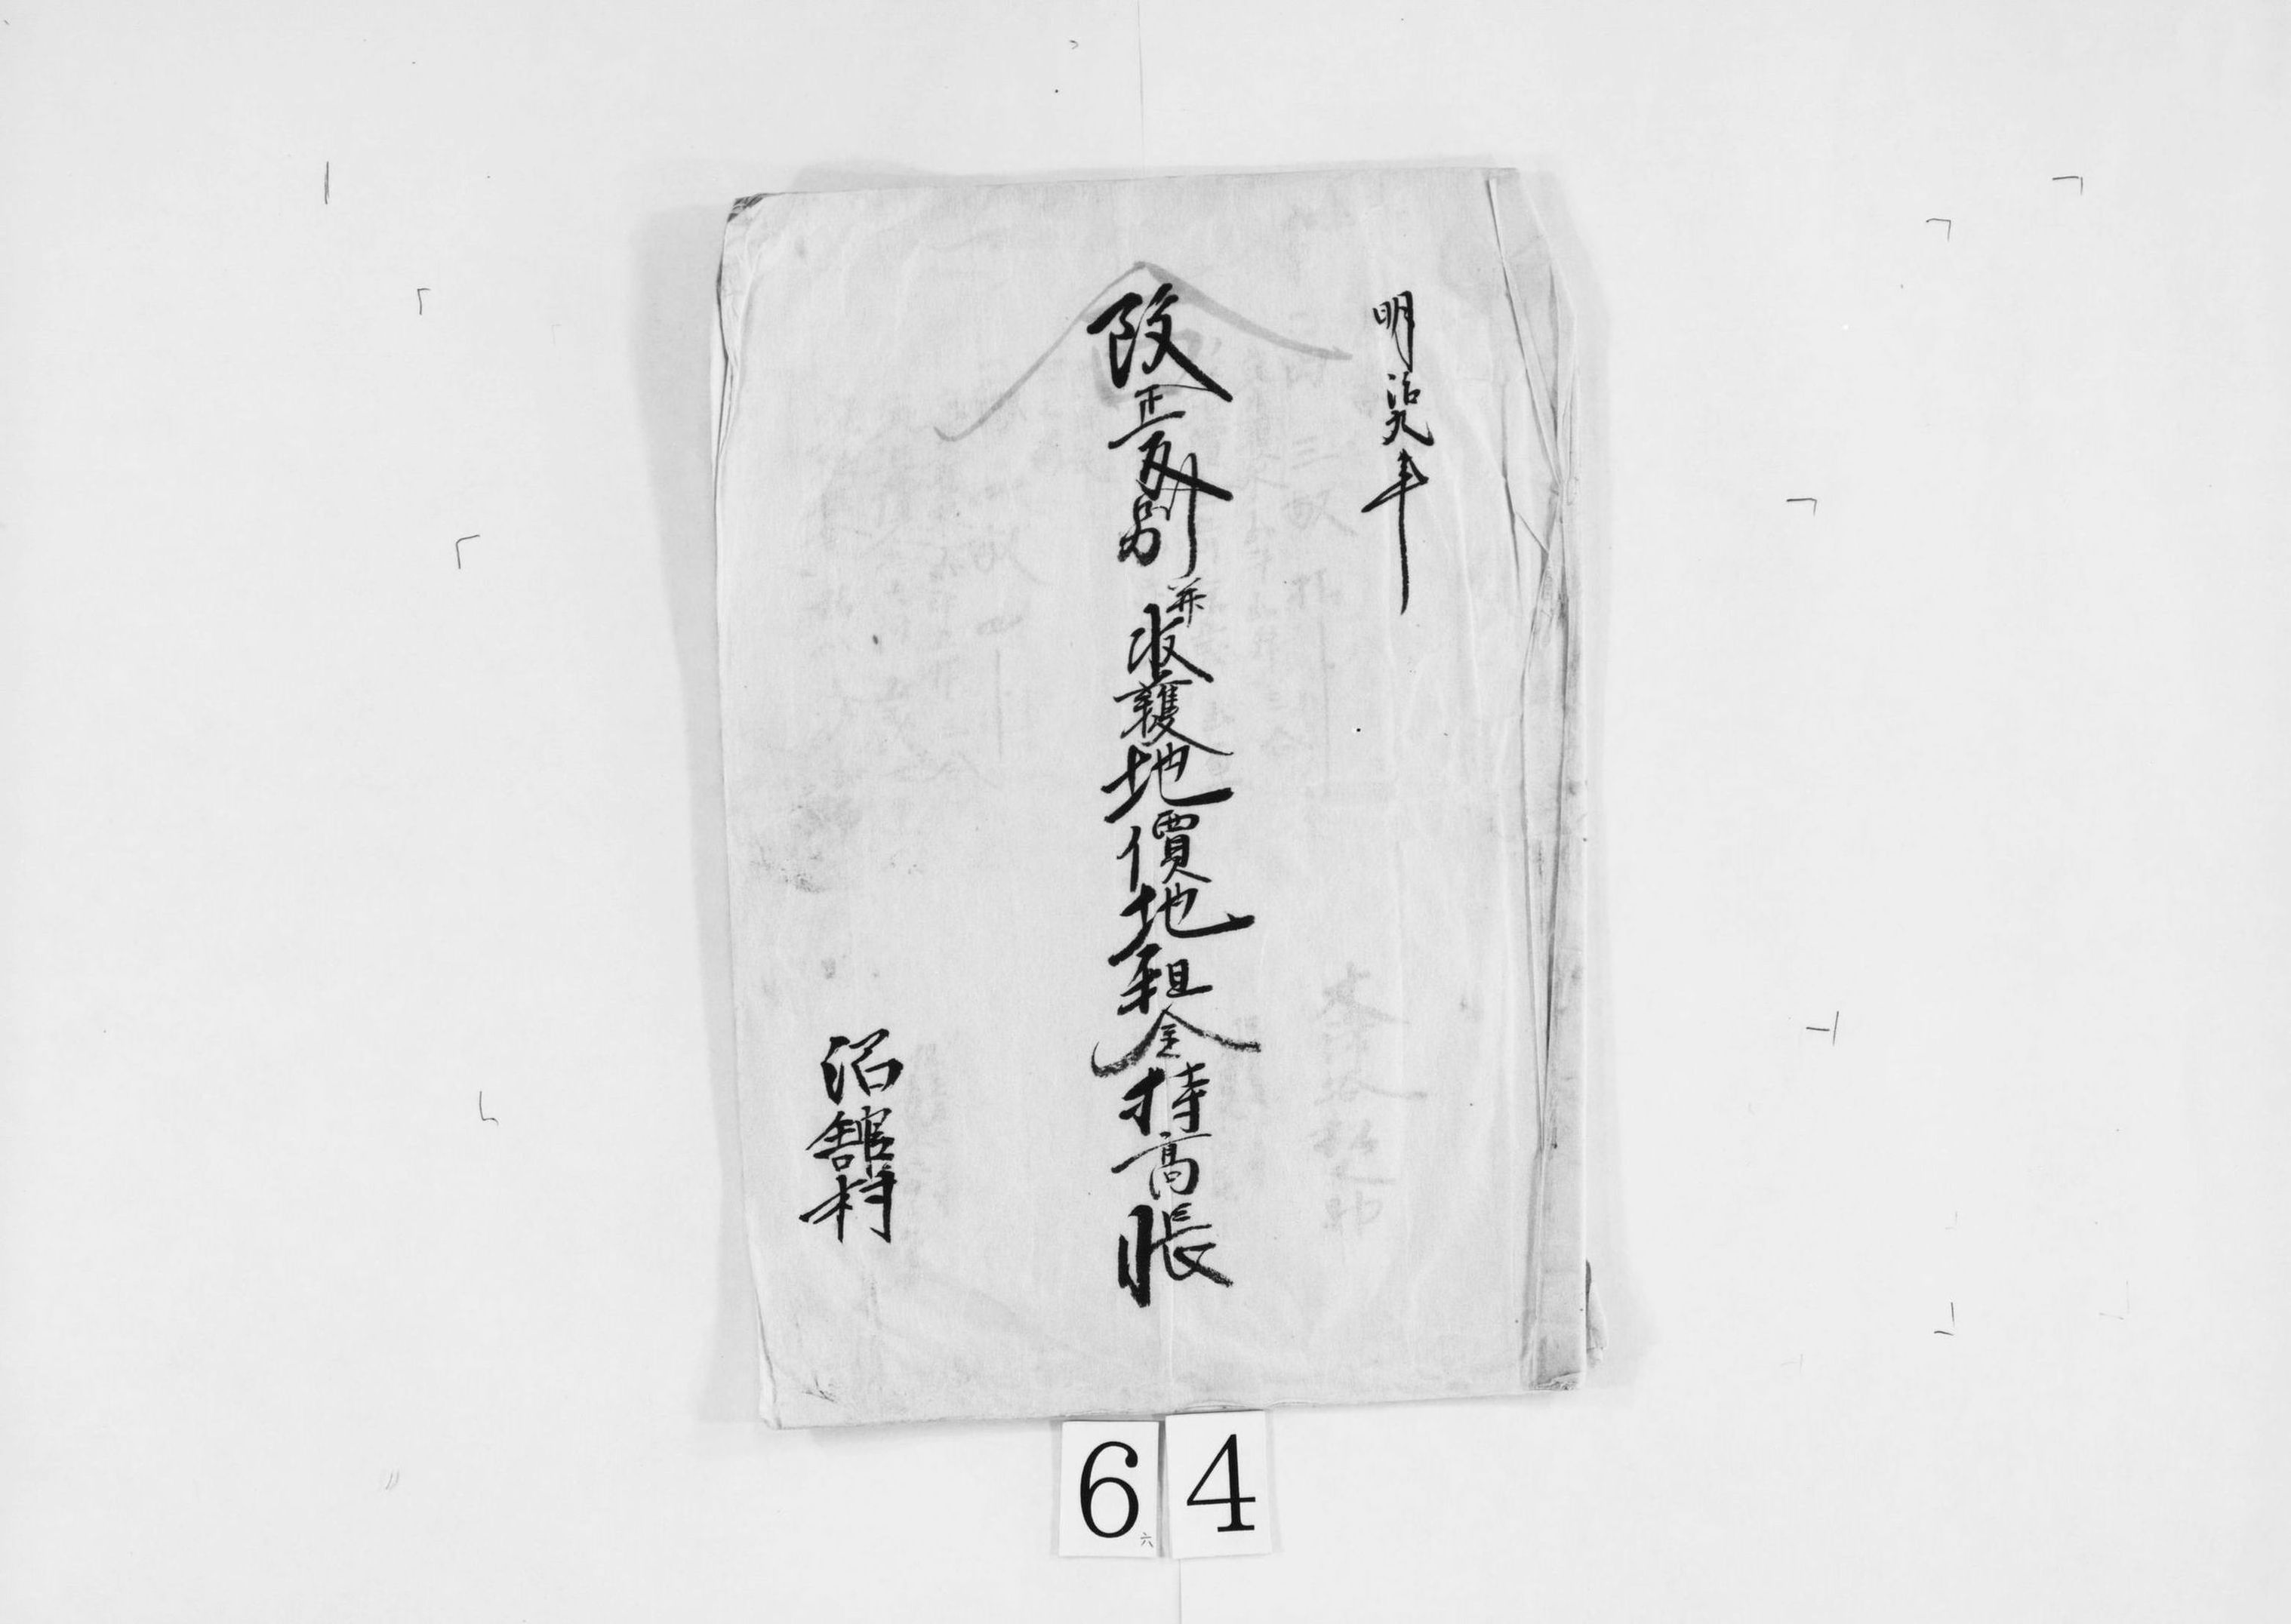 明治九年
改正反別并收穫地價地租金持高帳
沼舘村
64
六